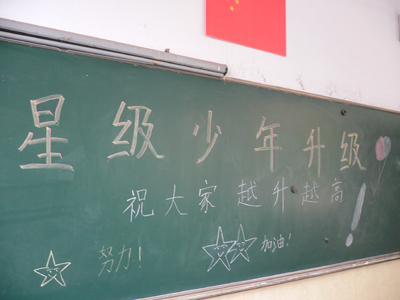 星级少年升级
祝大家越升越高
努力! 加油!